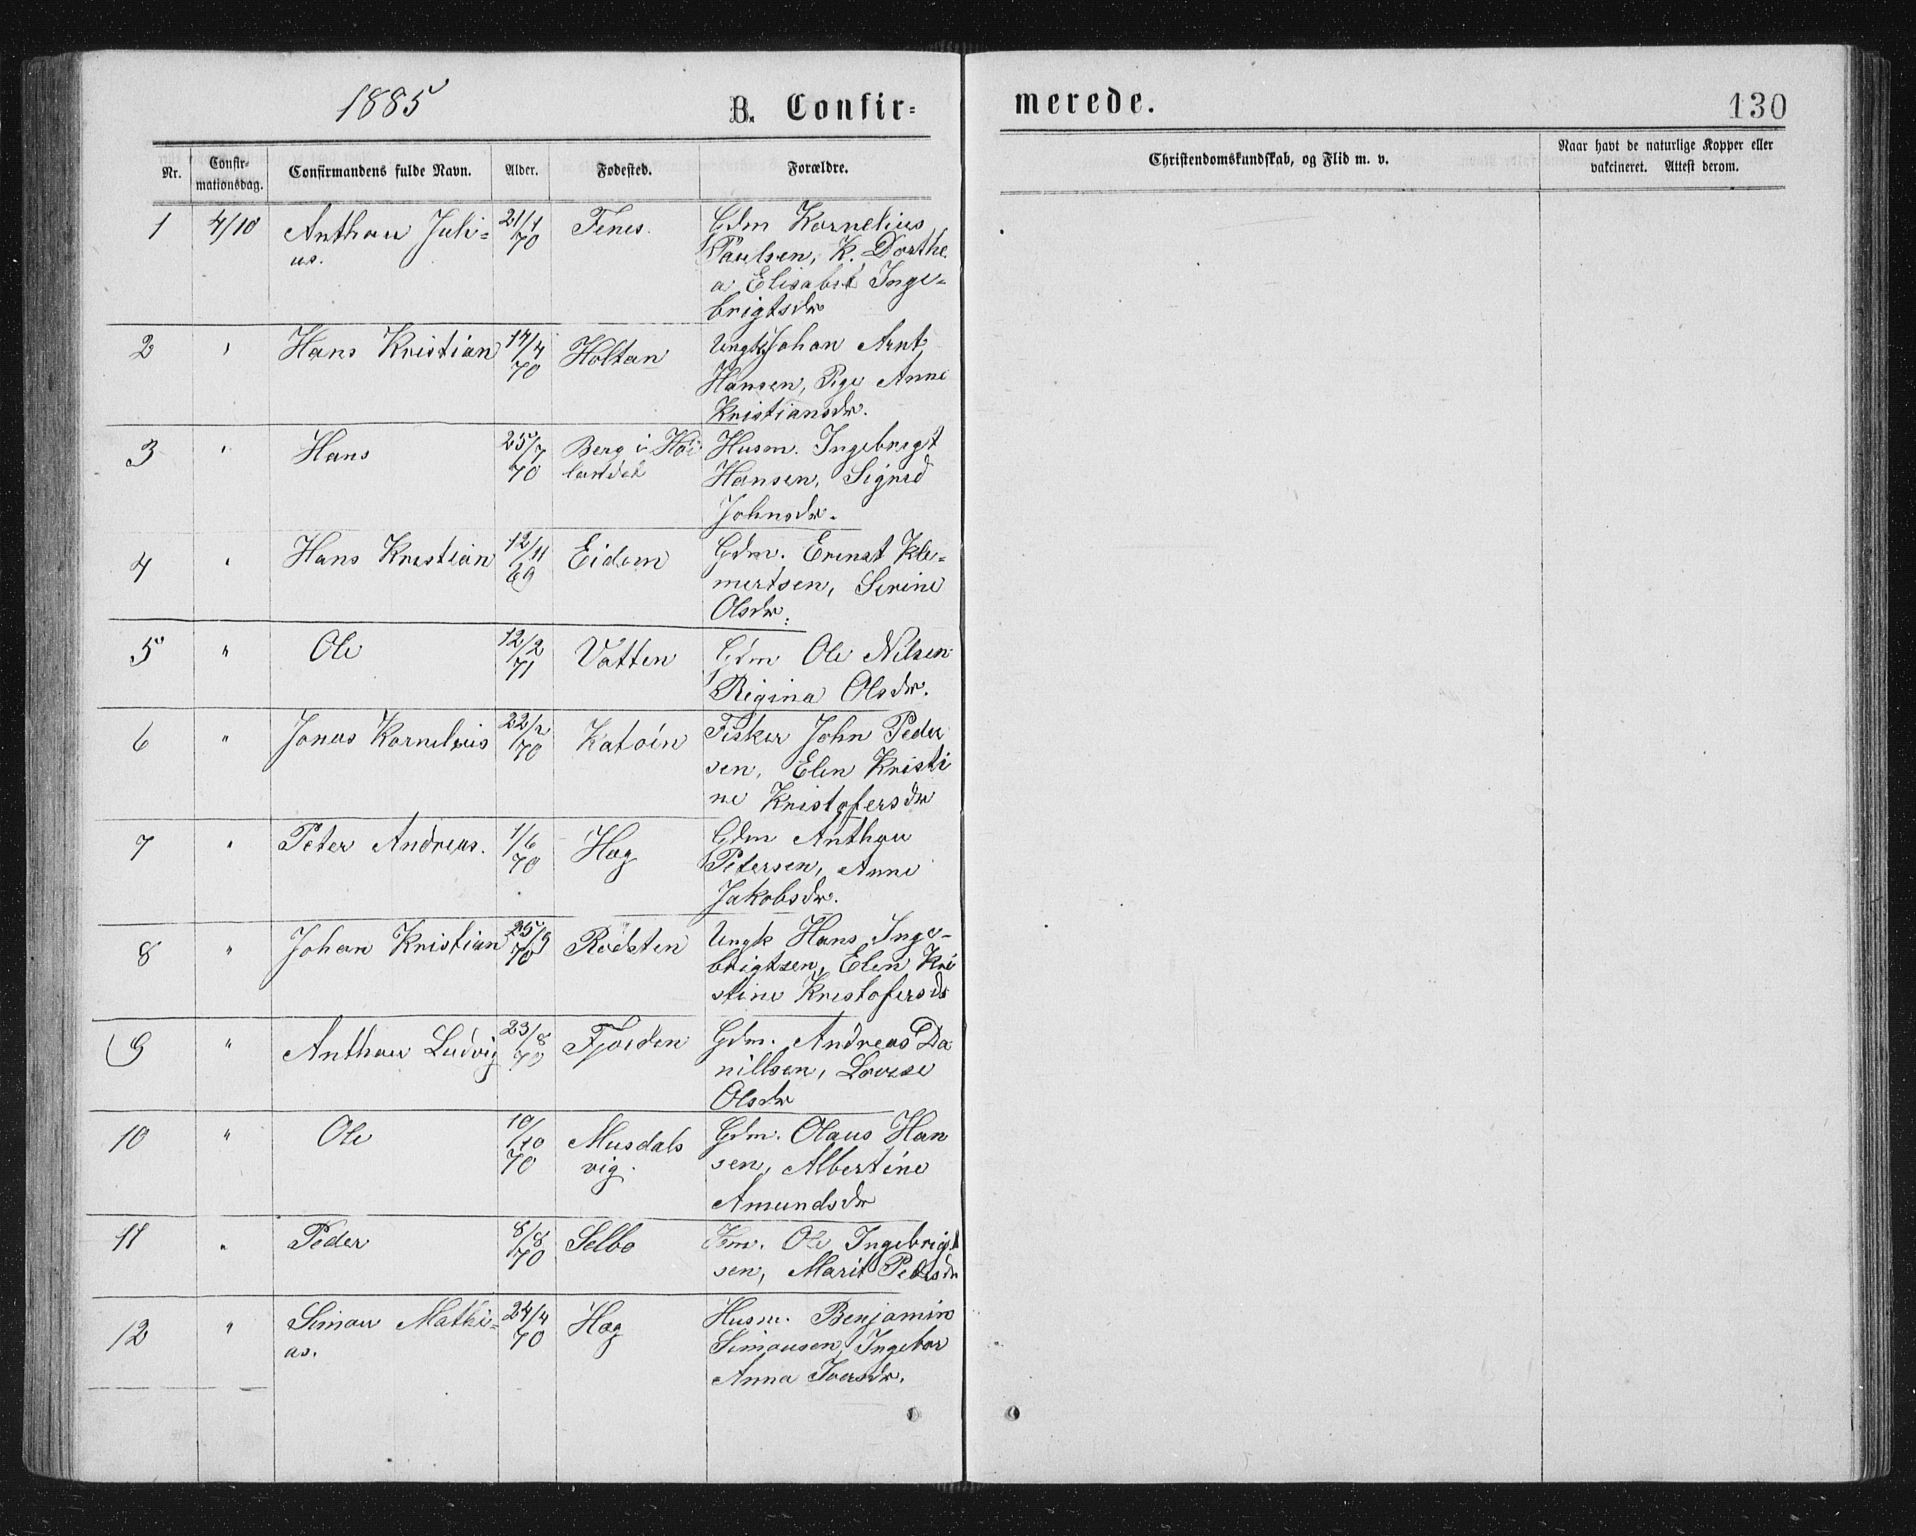 1885
B. Confir=
merede.
130
Nr.
Confir-
mationsdag.
Confirmandens fulde Navn.
Alder.
Fødested.
Forældre.
Christendomskundskab, og Flid m. v.
Naar havt de naturlige Kopper eller
vakcineret. Attest derom.
1 4/10 Anthon Juli= 21/1 Fenes. Gdm Kornelius
us. 70 Paulsen, K. Dorthe
a Elisabet Inge=
brigtsdr
2 " Hans Kristian 14/4 Holtan Ungk Johan Arnt
70 Hansen, Pige Anne
Kristiansdr.
3 " Hans 25/7 Berg i Høi Husm. Ingebrigt
70 landet Hansen, Sigrid
Johnsdr.
4 " Hans Kristian 12/11 Eidem Gdm. Erenst Kle=
69 mertsen, Serine
Olsdr.
5 " Ole 12/2 Vatten Gdm Ole Nilsen
71 Regina Olsdr.
6 " Jonas Kornelius 22/2 Fisker John Peder
70 sen, Elen Kristi
ne Kristofersdr
7 " Peter Andreas. 1/6 Hog Gdm Anthon
70 Petersen, Anne
Jakobsdr.
8 " Johan Kristian 25/9 Rødsten Ungk Hans Inge-
70 brigtsen, Elen Kri
stine Kristofersdr
9 " Anthon Ludvig 23/8 Fjorden Gdm. Andreas Da
70 nillsen, Lovise
Olsdr
10 " Ole 10/10 Musdals Gdm. Olaus Han
70 vig. sen, Albertine
Amundsdr
11 " Peder 8/8 Selbo Ole Ingebrigt
70 sen, Marit Pedsdr
12 " Simon Mathi= 24/4 Hog Husm. Benjamin
as. 70 Simonsen, Ingebor
Anna Iversdr.